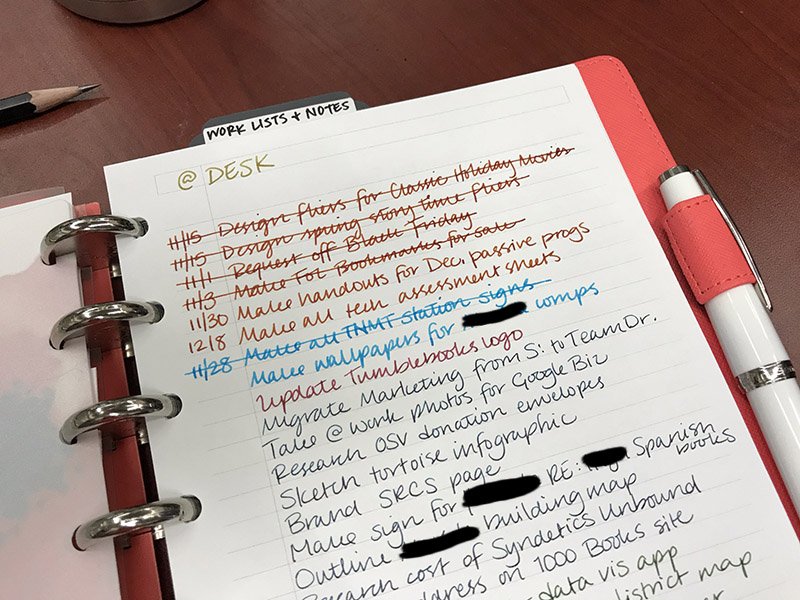 WORK LISTS + NOTES
@ DESK
11/15 Design fliers for Classic Holiday Movies
11/15 Design spring story time fliers
11/1 Request off Black Friday
11/3 Make FOL Bookmarks for sale
11/30 Make handouts for Dec. passive progs
12/8 Make all tech assessment sheets
11/28 Make all TNMT station signs
Make wallpapers for comps
Update Tumblebooks logo
Migrate Marketing from S: to Team Dr.
Take @ work photos for Google Biz
Research OSV donation envelopes
Sketch tortoise infographic
Brand SRCS page
Make sign for RE: Spanish books
Outline building map
Research cost of Syndetics Unbound
on 1000 Books site
data vis app
district map